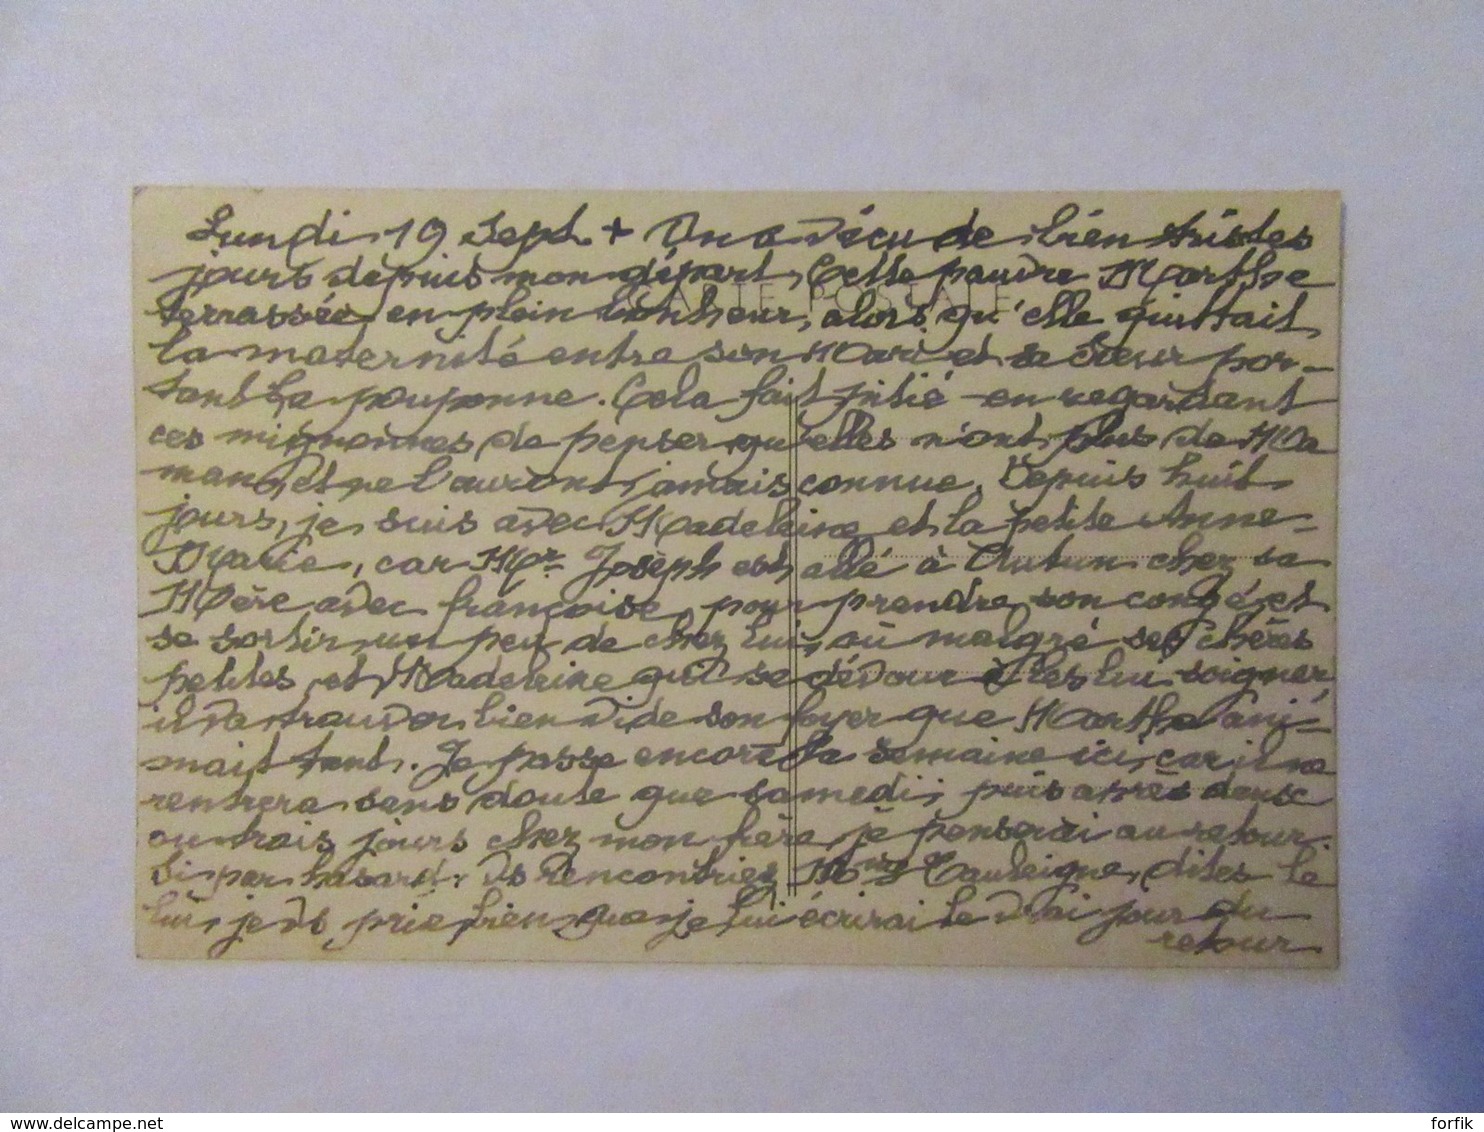 Lundi 19 Sept. + On a vécu de bien tristes
jours depuis mon départ, Cette pauvre Marthe
CARTE POSTALE
terrassée en plein bonheur, alors qu'elle quittait
la maternité entre son Mari et sa Sœur por-
tant la pouponne. Cela fait pitié en regardant
ces mignonnes de penser qu'elles n'ont plus de Ma
man, et ne l'auront jamais connue. Depuis huit
jours, je suis avec Madeleine et la petite Anne-
Marie, car Mr Joseph est allé à Autun chez sa
Mère avec françoise, pour prendre son congé, et
se sortir un peu de chez lui, où malgré ses chères
petites et Madeleine qui se dévoue à les lui soigner,
il va trouver bien vide son foyer que Marthe ani-
mait tant. Je passe encore la semaine ici, car il ne
rentrera sans doute que samedi, puis après deux
ou trois jours chez mon frère, je penserai au retour.
Si par hasard, vs rencontriez Mme dites le
lui, je vs prie bien que je lui écrirai le vrai jour du
retour
delcampe.net
forfik